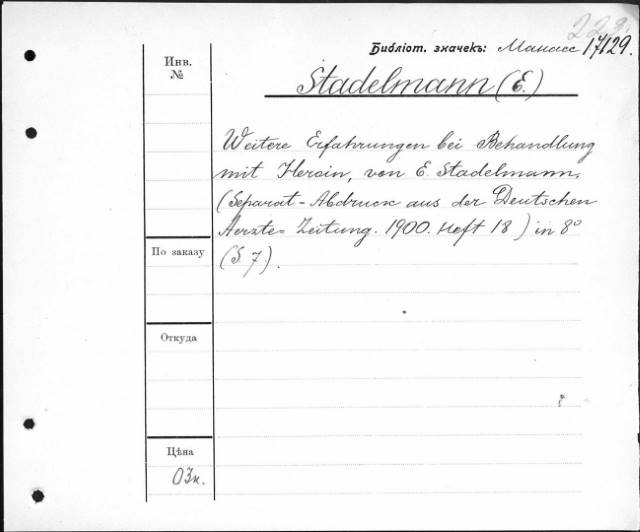 228
Библіот. значекъ: Манасс 17129.
Инв.
№
Stadelmann (E.)
Weitere Erfahrungen bei Behandlung
mit Heroin, von E. Stadelmann.
(Separat-Abdruck aus der Deutschen
Aerzte-Zeitung. 1900. Heft 18) in 8°
(S 7.).
По заказу
Откуда
Цѣна
03к.